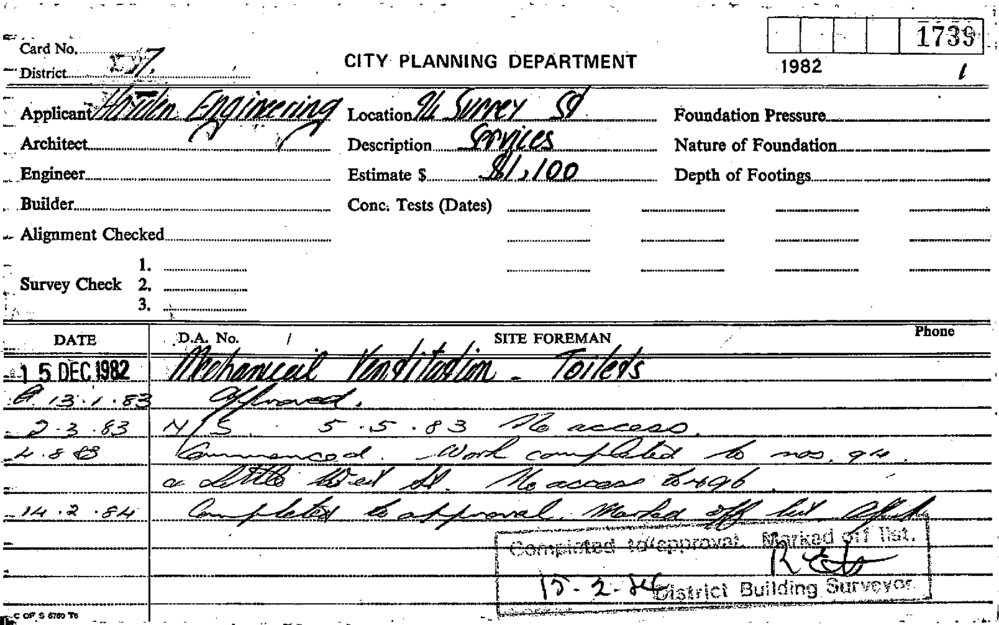 Card No.
1739
District
CITY PLANNING DEPARTMENT
1982
1
Applicant Howden Engineering
Location 94 Surrey St
Foundation Pressure
Architect
Description Services
Nature of Foundation
Engineer
Estimate $ $1,100
Depth of Footings
Builder
Conc. Tests (Dates)
Alignment Checked
Survey Check
1.
2.
3.
DATE
D.A. No.
SITE FOREMAN
Phone
15 DEC 1982 Mechanical Ventilation - Toilets
13.1.83 Approved.
2.3.83 N/S. 5.5.83 No access.
4.8.83 Commenced. Work completed to nos. 94.
Little West St. No access to 96.
14.2.84 Completed to approval. Marked off list.
Completed to approval. Marked off list.
15-2-84 District Building Surveyor.
C OF S 6780 T6